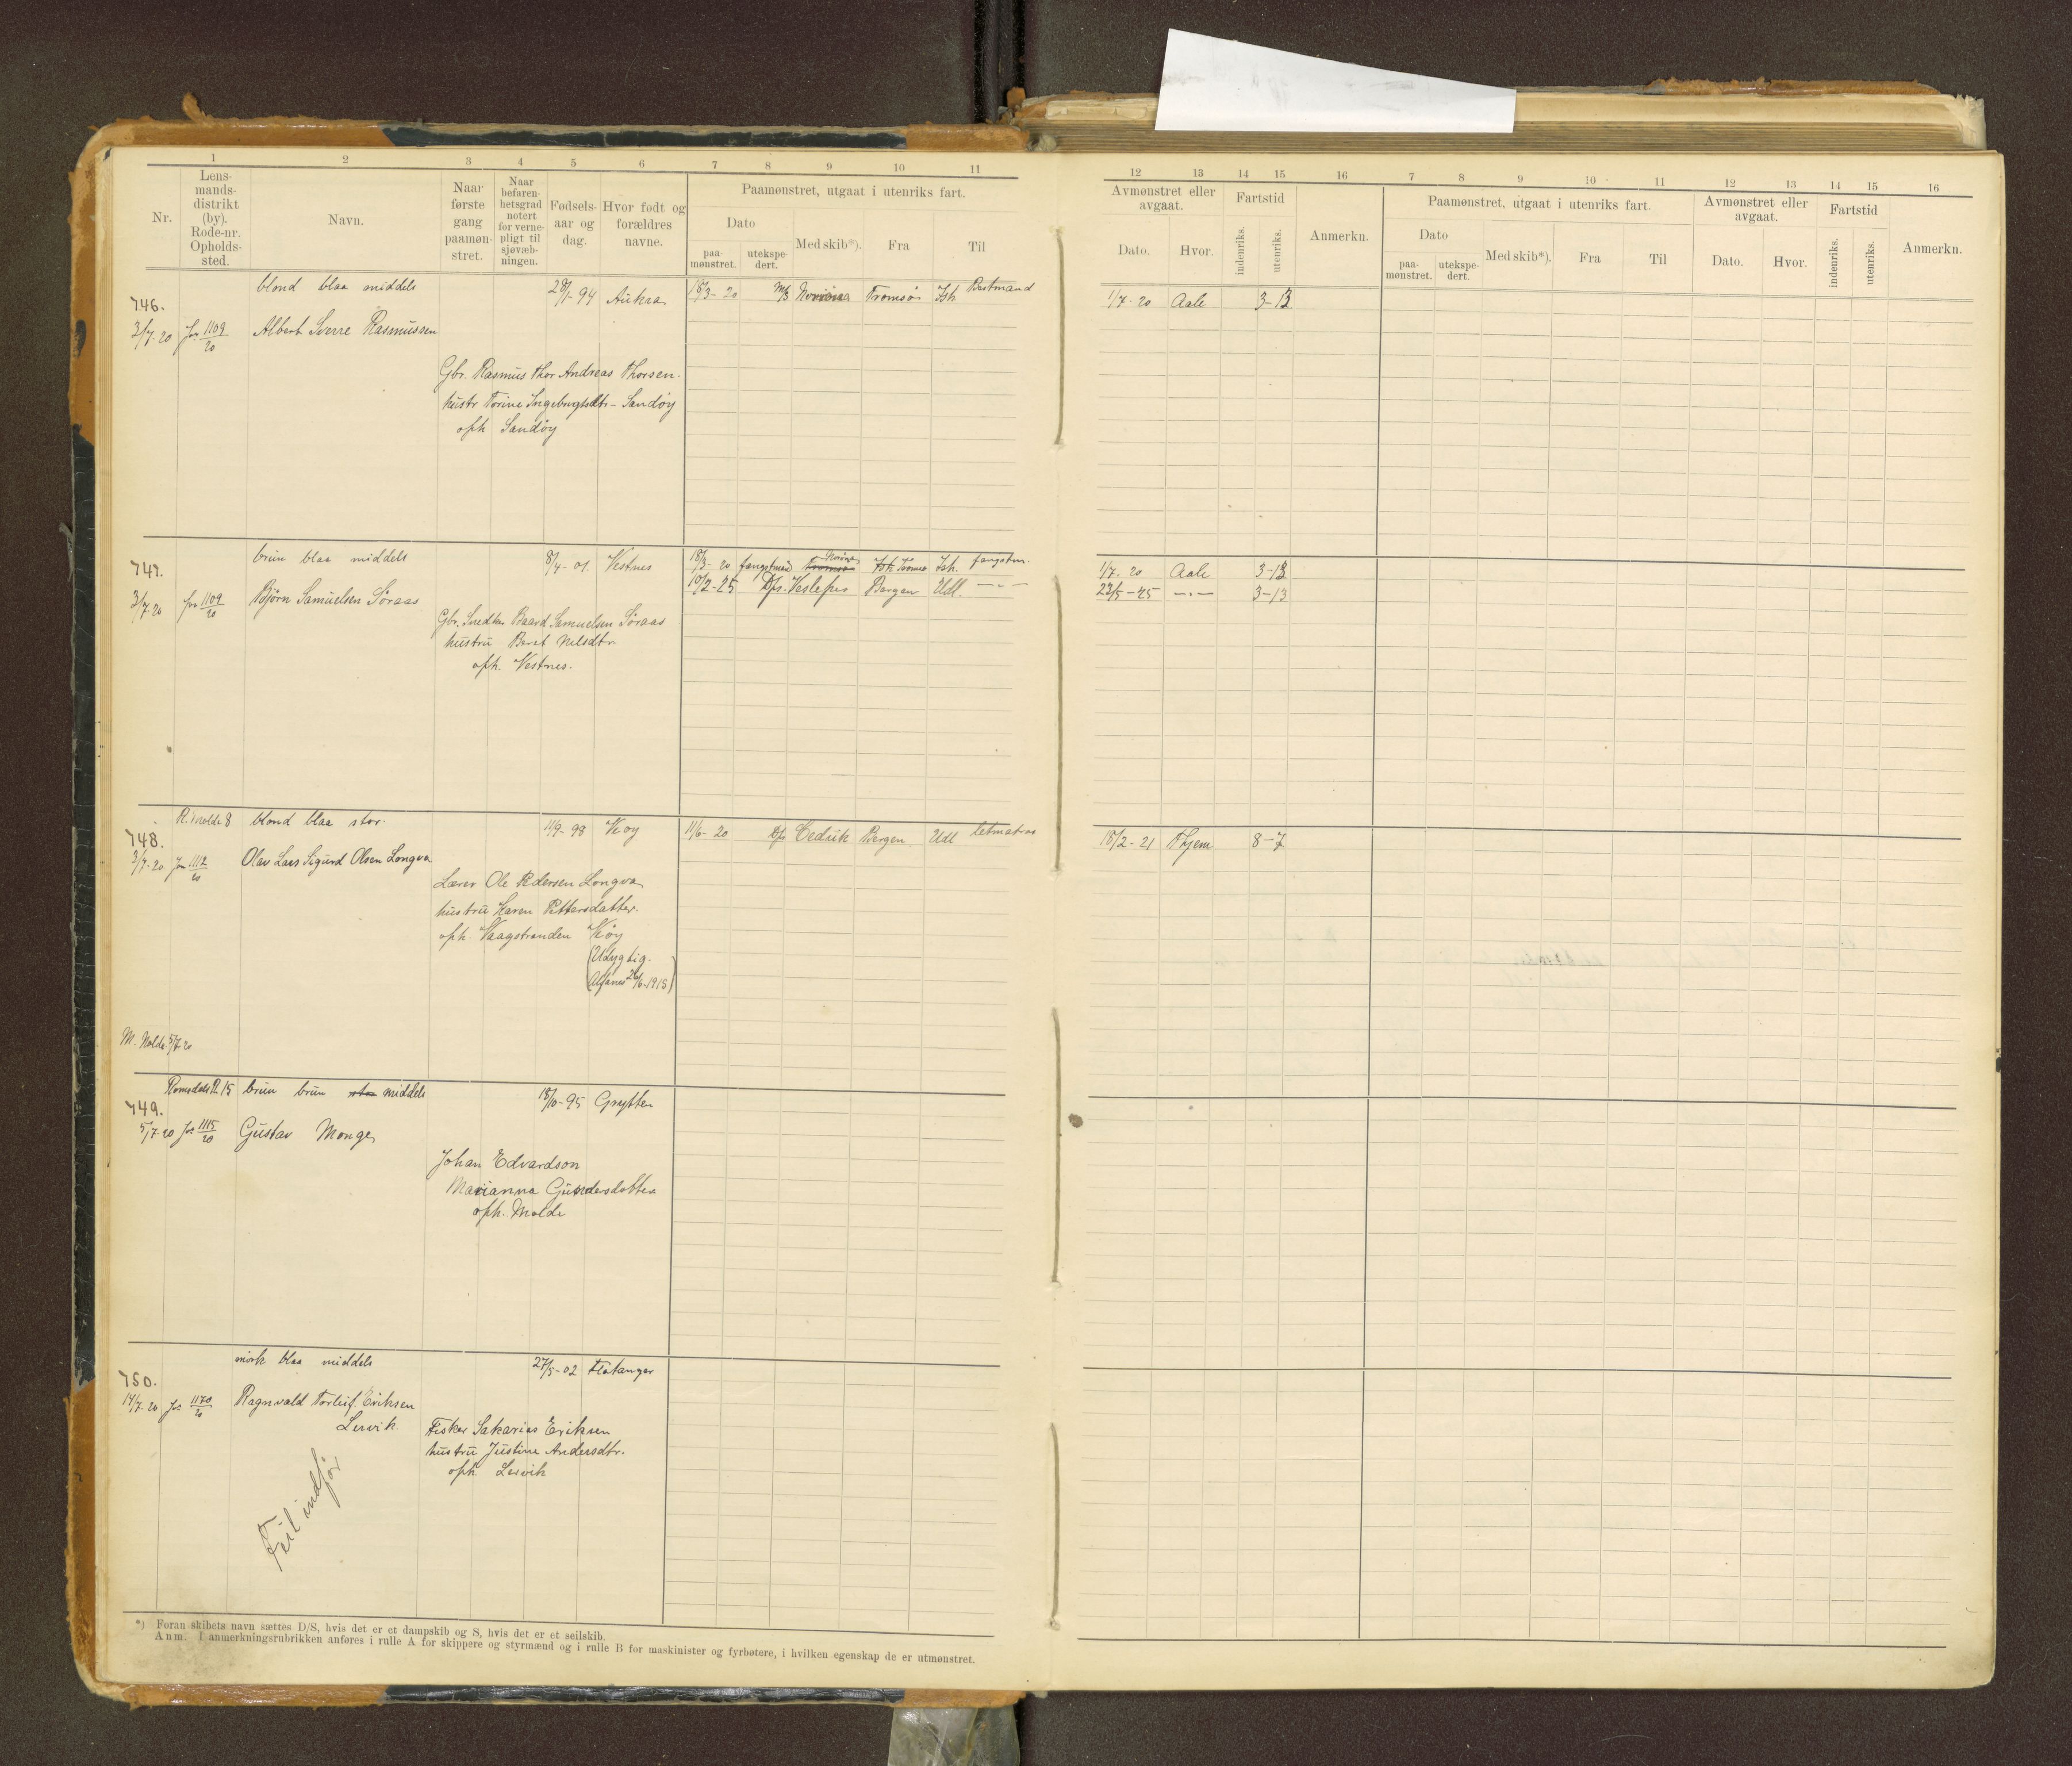 1 2 3 4 5 6 7 8 9 10 11
Nr.
Lens-
mands-
distrikt
(by).
Rode-nr.
Opholds-
sted.
Navn.
Naar
første
gang
paamøn-
stret.
Naar
befaren-
hetsgrad
notert
for verne-
pligt til
sjøvæb-
ningen.
Fødsels-
aar og
dag.
Hvor født og
forældres
navne.
Paamønstret, utgaat i utenriks fart.
Dato
paa-
mønstret.
utekspe-
dert.
Med skib*).
Fra
Til
746. blond blaa middels 28/1-94 Aukra 18/3-20 M/S Tromsø Ish. Bestmand
3/7-20 jnr 1109/20 Albert Sverre Rasmussen
Gbr. Rasmus Thor Andreas Thorsen.
hustr Torine Ingebrigtsdtr - Sandøy
oph Sandøy
747. brun blaa middels 8/4-01. Vestnes 18/3-20 Tromsø Ish. fangstm.
10/2-25 D/s. Vesleper Bergen Udl. -"-
3/7-20 jnr 1109/20 Bjørn Samuelsen Söraas
Gbr. Snedker Baard Samuelsen Söraas
hustru Beret Nilsdtr
oph. Vestnes.
R. Molde 8 blond blaa stor. 11/9-98 Vöy 11/6-20 D/s Cedrik Bergen Udl letmatros
748.
3/7-20 jnr 1112/20 Olav Lars Sigurd Olsen Longva
Lærer Ole Pedersen Longva
hustru Karen Pettersdatter.
oph. Vaagstranden Vöy
(Udygtig.
Alfanes 26/6-1915)
M. Molde 5/7 20
Romsdals R. 15 brun brun stor middels 18/10-95 Grytten
749.
5/7-20 jnr 1115/20 Gustav Monge
Johan Edvardson
Marianna Gundersdatter
oph. Molde
mørk blaa middels 27/5-02 Flatanger
750.
14/7-20 jnr 1170/20 Ragnvald Torleif Eriksen
Lervik.
Fisker Sakarias Eriksen
hustru Justine Andersdtr.
oph. Lervik
Feil indfør
*) Foran skibets navn sættes D/S, hvis det er et dampskib og S, hvis det er et seilskib.
Anm. I anmerkningsrubrikken anføres i rulle A for skippere og styrmænd og i rulle B for maskinister og fyrbøtere, i hvilken egenskap de er utmønstret.
12 13 14 15 16 7 8 9 10 11 12 13 14 15 16
Avmønstret eller
avgaat.
Dato.
Hvor.
Fartstid
indenriks.
utenriks.
Anmerkn.
Paamønstret, utgaat i utenriks fart.
Dato
paa-
mønstret.
utekspe-
dert.
Med skib*).
Fra
Til
Avmønstret eller
avgaat.
Dato.
Hvor.
Fartstid
indenriks.
utenriks.
Anmerkn.
1/7-20 Aale 3-13
1/7-20 Aale 3-13
23/5-25 -"- 3-13
18/2-21 Hjem 8-7